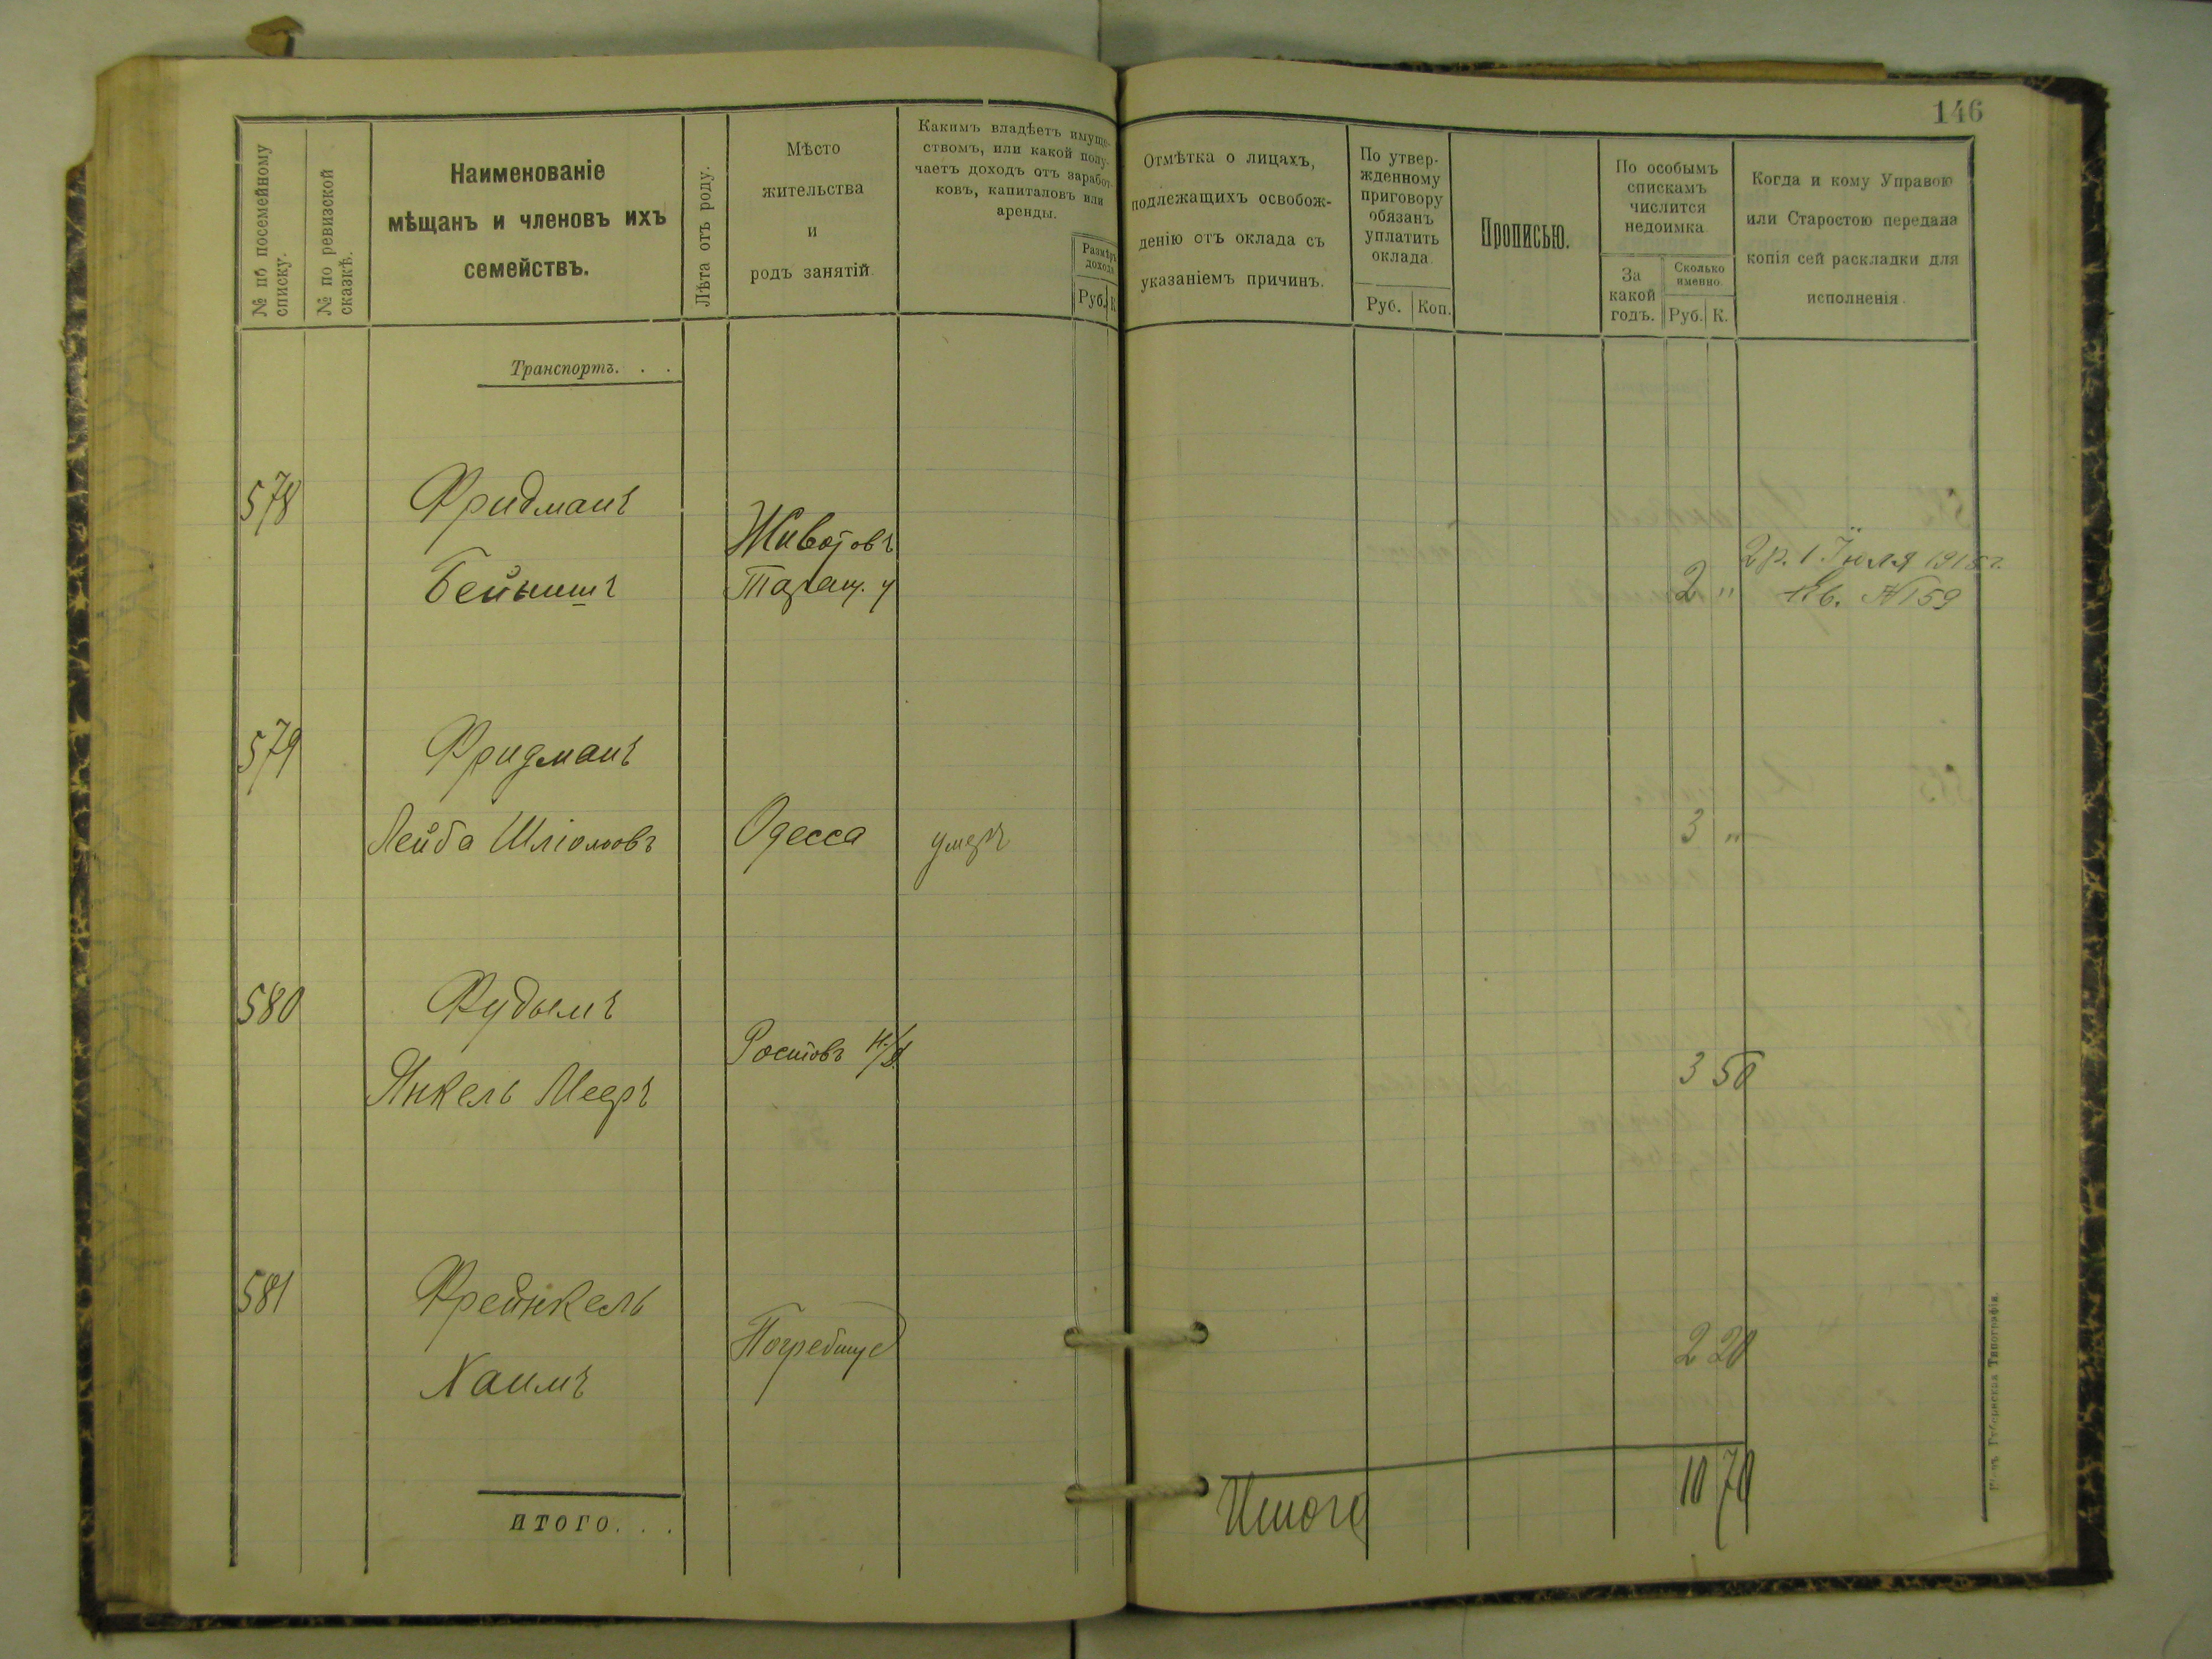 146
№ по посемейному списку.
№ по ревизской сказкѣ.
Наименованіе
мѣщанъ и членовъ ихъ
семействъ.
Лѣта отъ роду.
Мѣсто
жительства
и
родъ занятій.
Какимъ владѣетъ имуще-
ствомъ, или какой полу-
чаетъ доходъ отъ заработ-
ковъ, капиталовъ или
аренды.
Размѣръ
дохода
Руб. К
Отмѣтка о лицахъ,
подлежащихъ освобож-
денію отъ оклада съ
указаніемъ причинъ.
По утвер-
жденному
приговору
обязанъ
уплатить
оклада
Руб. Коп.
Прописью.
По особымъ
спискамъ
числится
недоимка
За
какой
годъ.
Сколько
именно.
Руб. К.
Когда и кому Управою
или Старостою передана
копія сей раскладки для
исполненія.
Транспортъ. . .
578 Фридманъ
Животовъ
2 р. 1 Іюля 1915 г.
Бейнишъ Таращ. у 2 " Кв. № 159
579 Фридманъ
Лейба Шліомовъ Одесса умеръ 3 "
580 Фудымъ
Ростовъ н/Д. 3 50
Янкель Мееръ
581 Френкель
Погребище 2 20
Хаимъ
Итого 10 70
ИТОГО. . .
Губернская Типографія.